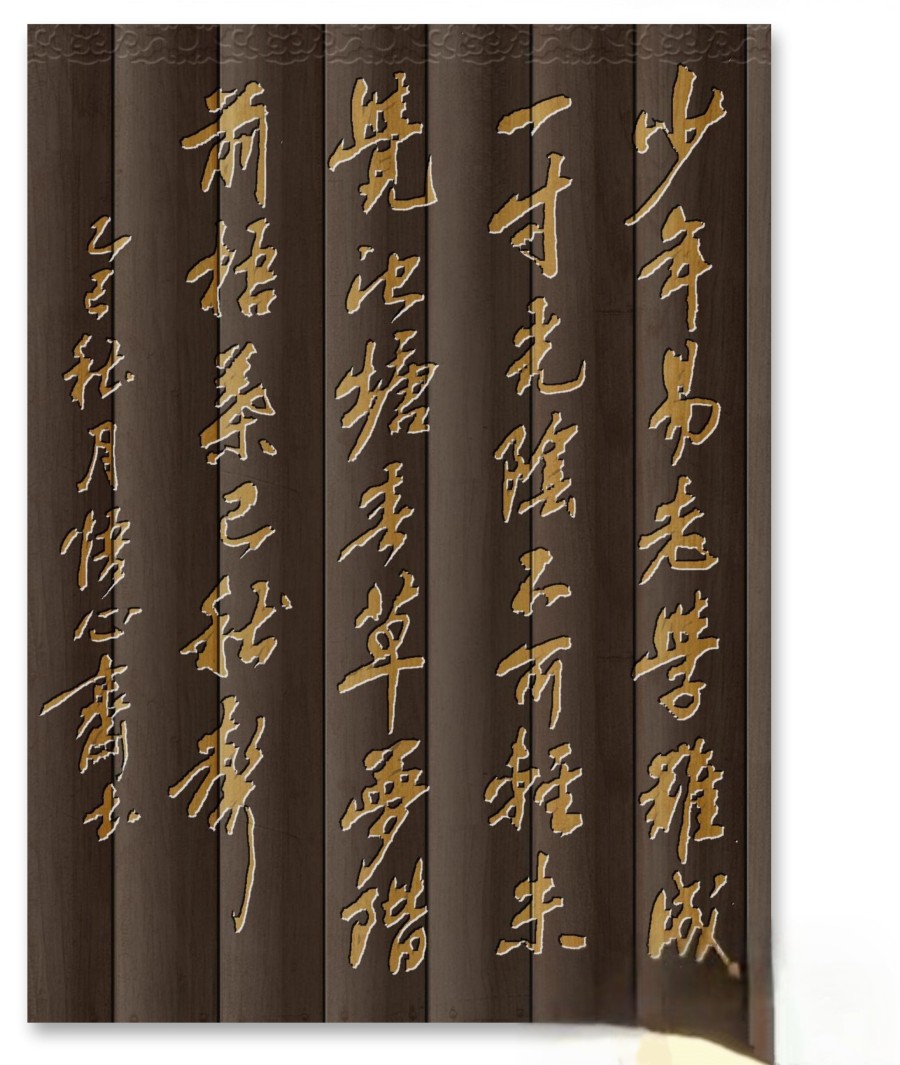 少年易老學難成
一寸光陰不可輕未
覺池塘春草夢階
前梧葉已秋聲
乙巳秋月悟心齋书